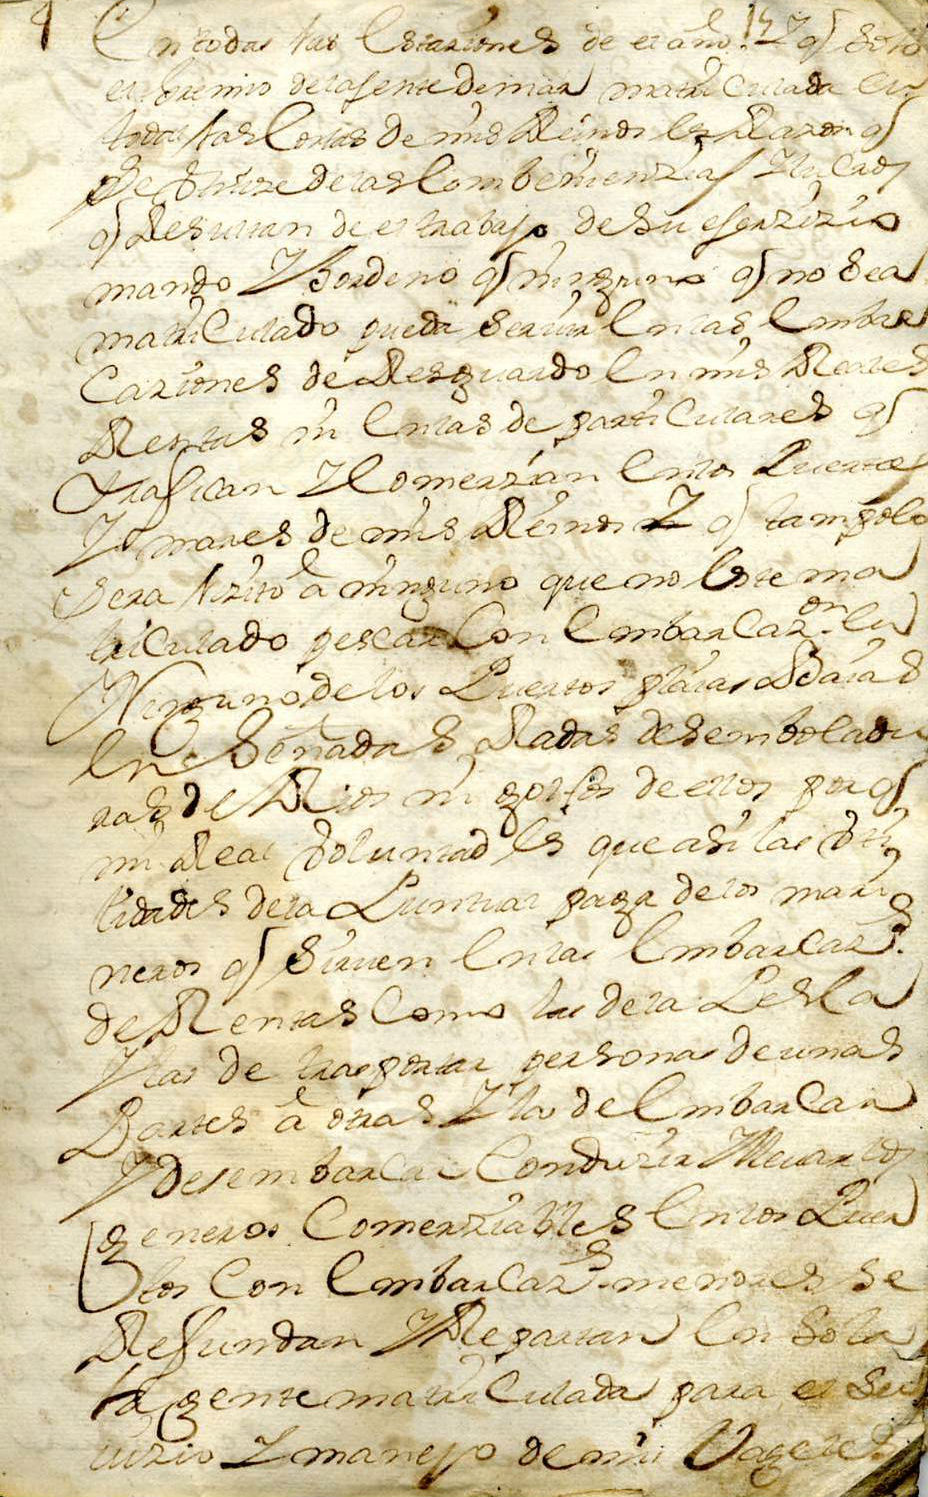 En todas las Estaziones de el año. 14 Y q solo
el Gremio de la Jente de mar matriculada en
todas las Costas de mis Reinos es Razon q
se utilize de las Combenienzias
q Resultan de el trabajo de su exerzizio
mando Y ordeno q ninguno q no sea
matriculado pueda seruir En las Embar
Caziones de Resguardo En mis Reales
Rentas ni En las de particulares q
trafican Y Comerzian En los Puertos
Y mares de mis Reinos Y q tampoco
sera lizito a ninguno que no Este ma
triculado pescar Con Embarcazon. en
Ninguno de los Puertos plaias Baias
Ensenadas Radas desembocadu
ras de Rios ni golfos de ellos por q
mi Real Voluntad Es que asi las Uti
lidades de la Puntual paga de los mari
neros q siruen En las Embarcazs.
de Rentas Como las de la Pesca
Y las de trasportar personas de unas
Partes a otras Y la de Embarcar
Y desembarcar Conduzir Y lleuar los
generos Comerziables En los Puer
tos Con Embarcazs. menores se
Refundan Y Repartan En sola
la gente matriculada para el Ser
uizio Y manejo de mis Vageles